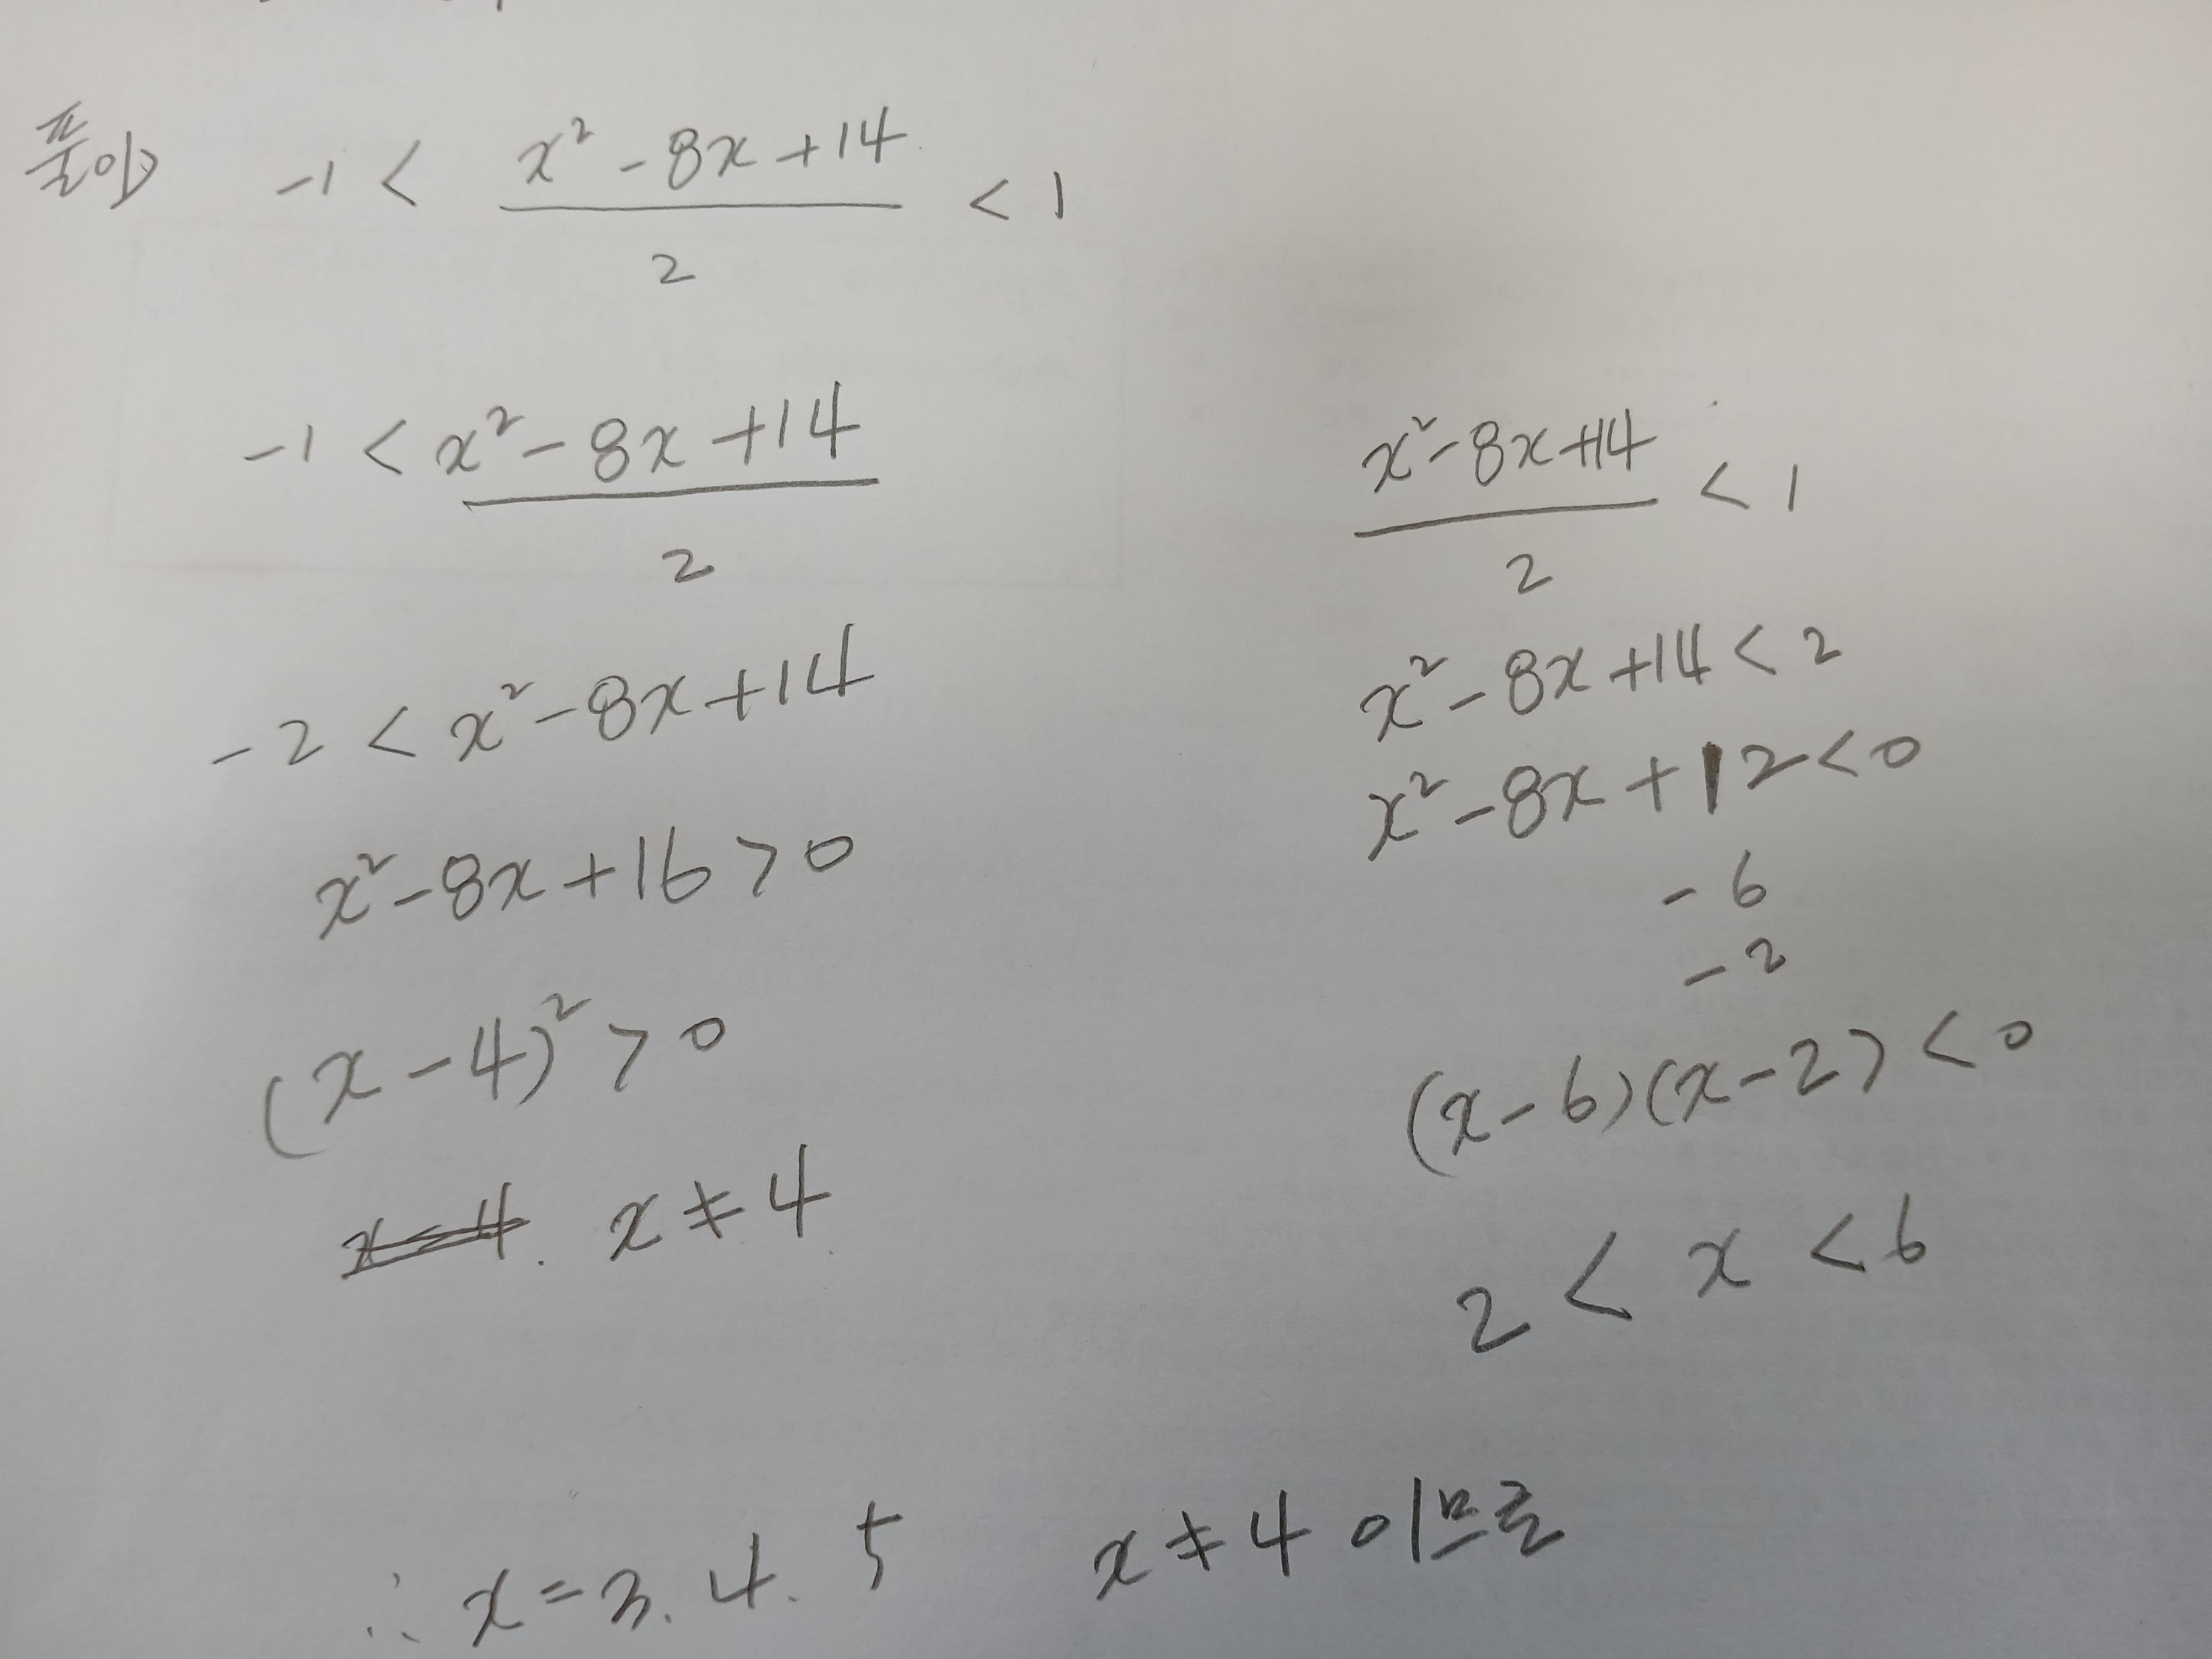 풀이) -1 < (x² - 8x + 14)/2 < 1
-1 < (x² - 8x + 14)/2
-2 < x² - 8x + 14
x² - 8x + 16 > 0
(x - 4)² > 0
x ≠ 4
(x² - 8x + 14)/2 < 1
x² - 8x + 14 < 2
x² - 8x + 12 < 0
- 6
- 2
(x - 6)(x - 2) < 0
2 < x < 6
∴ x = 3. 4. 5 x ≠ 4 이므로